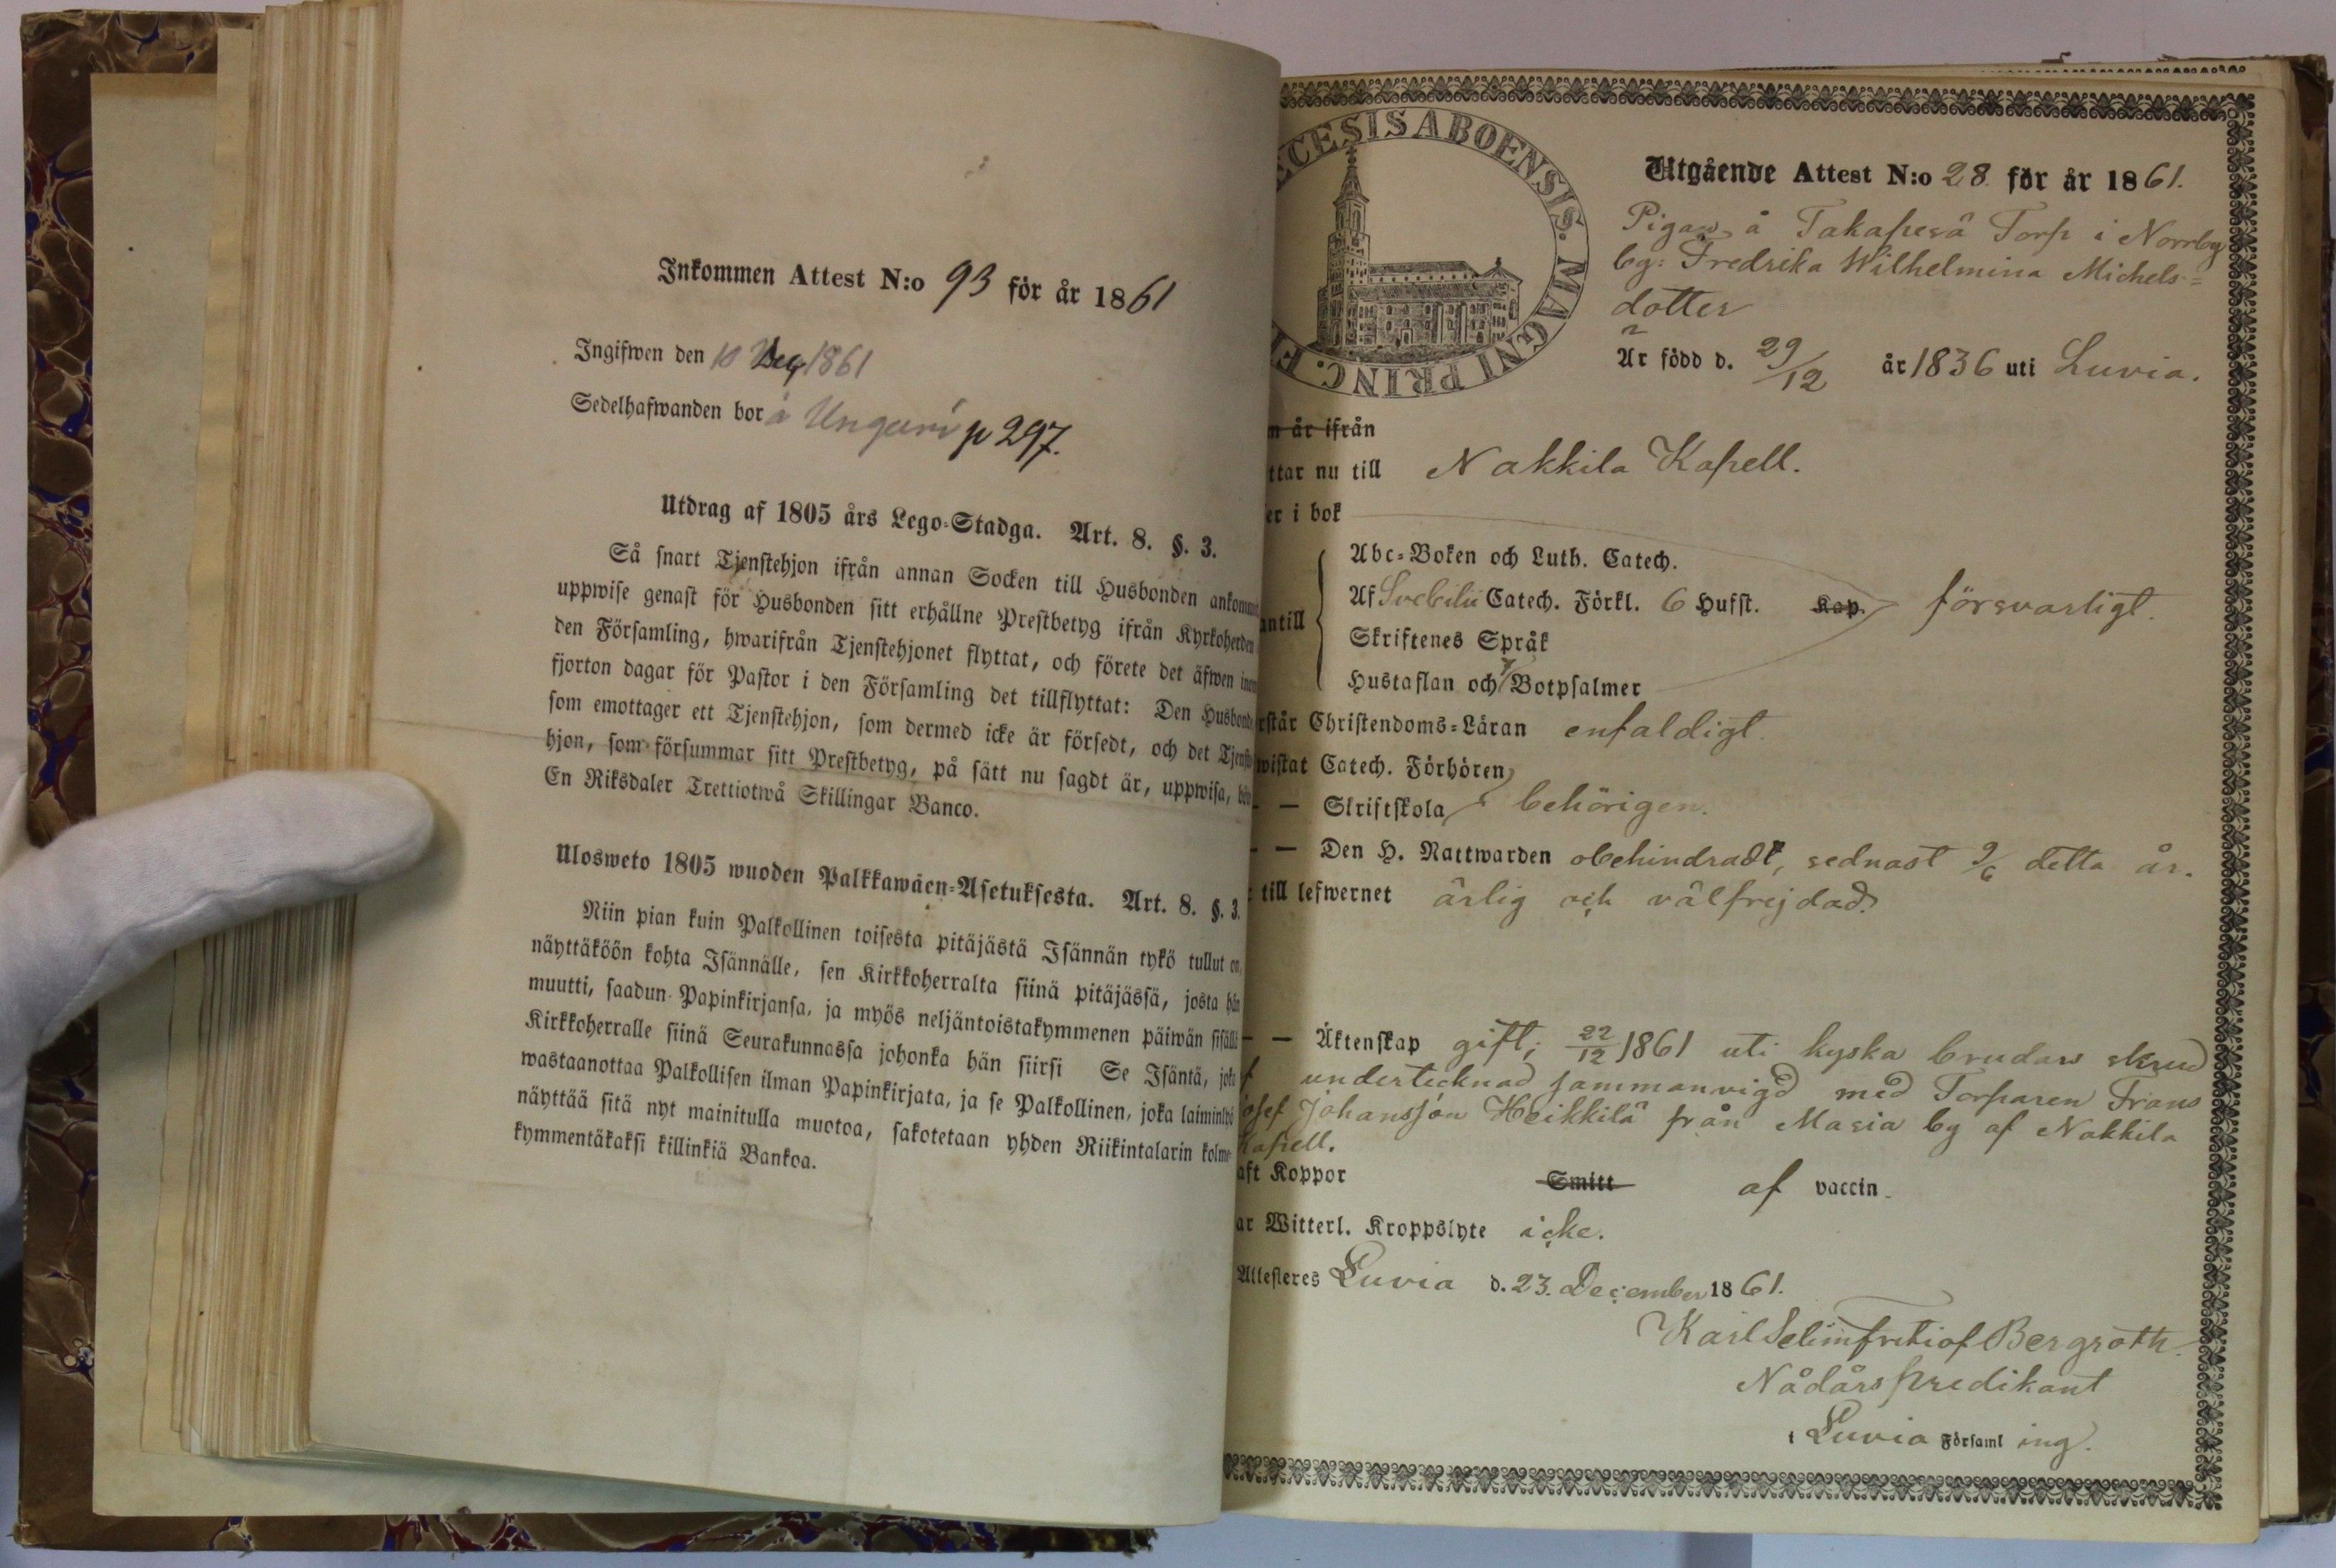 Inkommen Attest N:o 93 för år 1861
Ingifwen den 10 1861
Sedelhafwanden bor å Ungari p 297.
Utdrag af 1805 års Lego-Stadga. Art. 8. §. 3.
Så snart Tjenstehjon ifrån annan Socken till Husbonden ankommit
uppwise genast för Husbonden sitt erhållne Prestbetyg ifrån Kyrkoherden
den Församling, hwarifrån Tjenstehjonet flyttat, och förete det äfwen inom
fjorton dagar för Pastor i den Församling det tillflyttat: Den Husbonde
som emottager ett Tjenstehjon, som dermed icke är försedt, och det Tjenste
hjon, som försummar sitt Prestbetyg, på sätt nu sagdt är, uppwisa, böte
En Riksdaler Trettiotwå Skillingar Banco.
Ulosweto 1805 wuoden Palkkawäen-Asetuksesta. Art. 8. §. 3.
Niin pian kuin Palkollinen toisesta pitäjästä Isännän tykö tullut on,
näyttäköön kohta Isännälle, sen Kirkkoherralta siinä pitäjässä, josta hän
muutti, saadun Papinkirjansa, ja myös neljäntoistakymmenen päiwän sisällä
Kirkkoherralle siinä Seurakunnassa johonka hän siirsi Se Isäntä, joka
wastaanottaa Palkollisen ilman Papinkirjata, ja se Palkollinen, joka laiminlyö
näyttää sitä nyt mainitulla muotoa, sakotetaan yhden Riikintalarin kolme-
kymmentäkaksi killinkiä Bankoa.
ECESIS ABOENSIS. MAGNI PRINC. FI
Utgående Attest N:o 28. för år 1861.
Pigan å Takapesä Torp i Norrby
by: Fredrika Wilhelmina Michels=
dotter
Är född d. 29/12 år 1836 uti Luvia.
n år ifrån
ttar nu till Nakkila Kapell.
er i bok
Abc-Boken och Luth. Catech.
antill Af Svebilii Catech. Förkl. 6 Hufst. Kap. försvarligt.
Skriftenes Språk
Hustaflan och 7 Botpsalmer
rstår Christendoms-Läran enfaldigt.
wistat Catech. Förhören
— — Skriftskola behörigen.
— — Den H. Nattwarden obehindradt, sednast 9/6 detta år.
: till lefwernet ärlig och välfrejdad.
— — Äktenskap gift; 22/12 1861 uti kyska brudars skrud
f undertecknad sammanvigd med Torparen Frans
Josef Johansson Heikkilä från Masia by af Nakkila
Kapell.
aft Koppor Smitt af vaccin.
ar Witterl. Kroppslyte icke.
Attesteres Luvia d. 23. December 1861.
Karl Selim Fritiof Bergroth.
Nådårspredikant
i Luvia Församl ing.